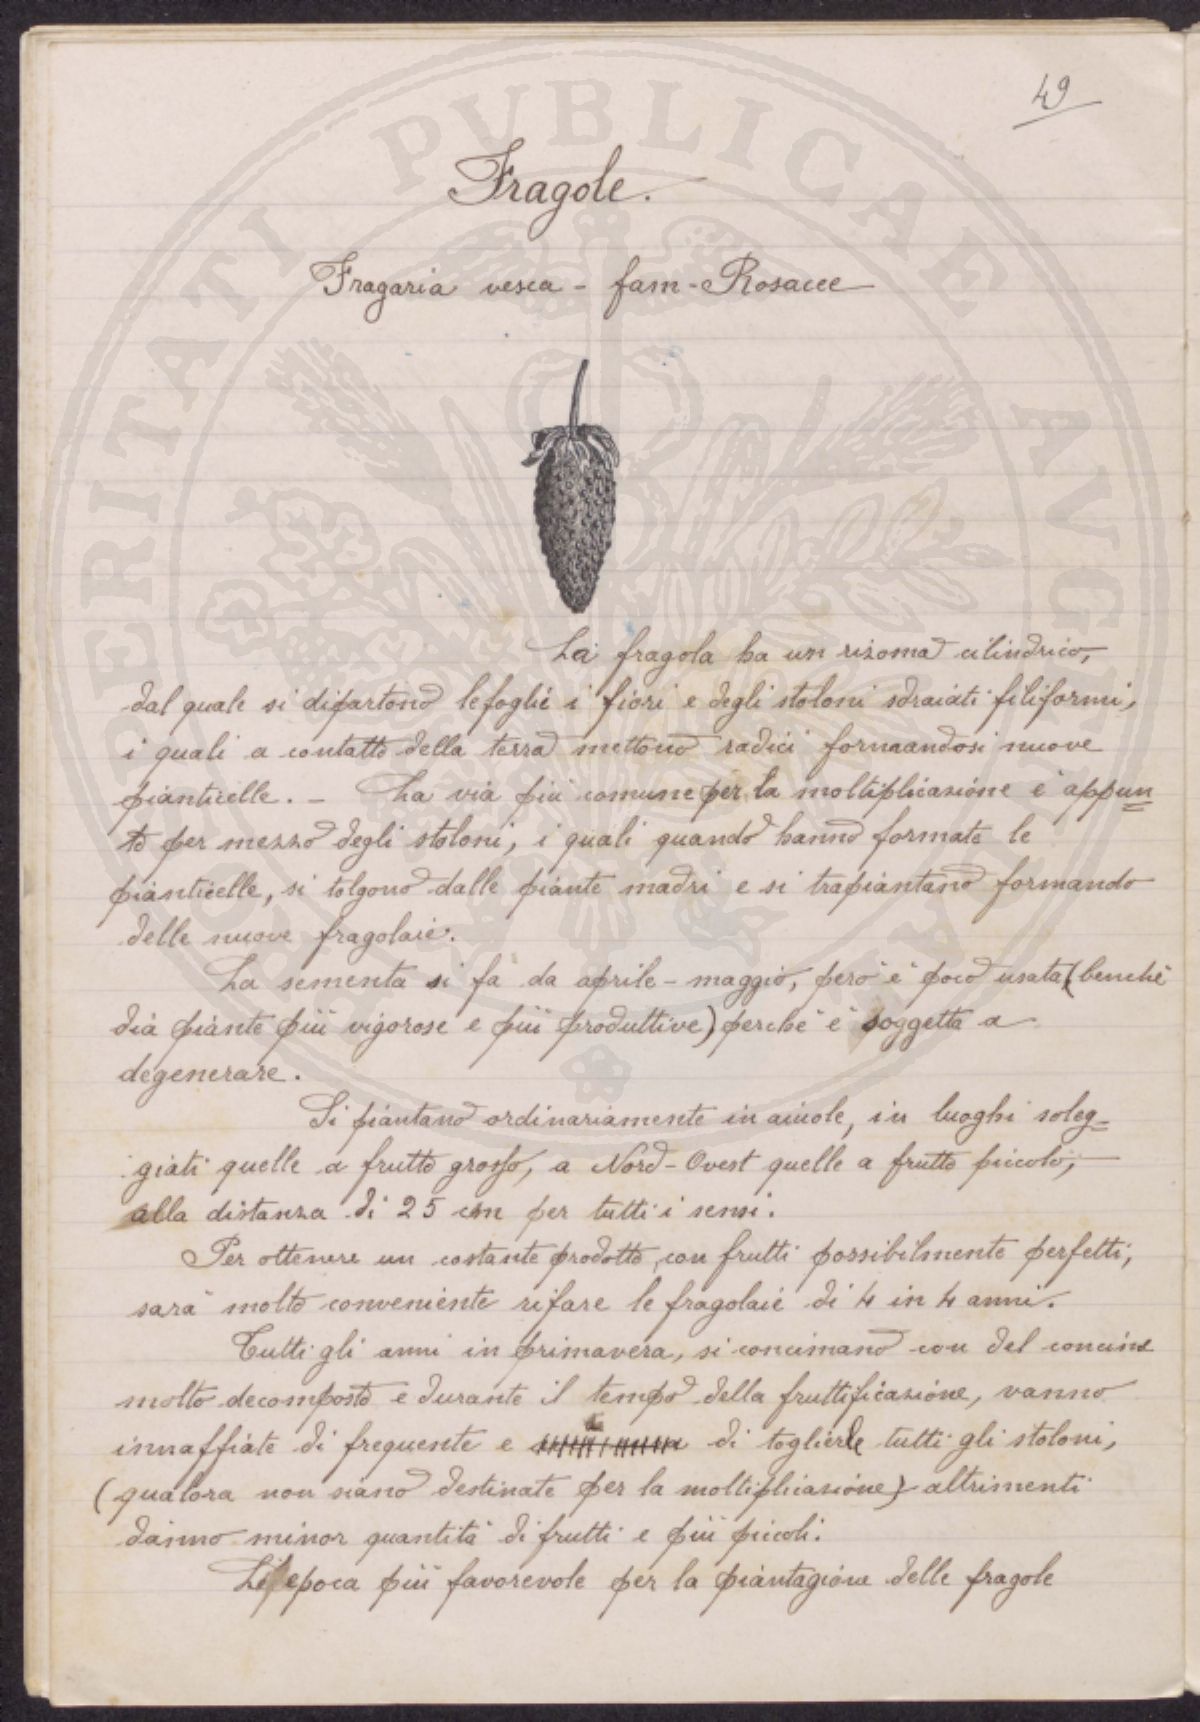 49
Fragole.
Fragaria vesca - fam - Rosacee
La fragola ha un rizoma cilindrico,
dal quale si dipartono le foglie i fiori e degli stoloni sdraiati filiformi,
i quali a contatto della terra mettono radici formandosi nuove
pianticelle. - La via più comune per la moltiplicazione è appun=
to per mezzo degli stoloni, i quali quando hanno formate le
pianticelle, si tolgono dalle piante madri e si trapiantano formando
delle nuove fragolaie.
La sementa si fa da aprile - maggio, però è poco usata (benché
dia piante più vigorose e più produttive) perché è soggetta a
degenerare.
Si piantano ordinariamente in aiuole, in luoghi soleg=
giati quelle a frutto grosso, a Nord-Ovest quelle a frutto piccolo,
alla distanza di 25 cm per tutti i sensi.
Per ottenere un costante prodotto, con frutti possibilmente perfetti,
sarà molto conveniente rifare le fragolaie di 4 in 4 anni.
Tutti gli anni in primavera, si concimano con del concime
molto decomposto e durante il tempo della fruttificazione, vanno
innaffiate di frequente e di toglierle tutti gli stoloni,
(qualora non siano destinate per la moltiplicazione) altrimenti
danno minor quantità di frutti e più piccoli.
L'epoca più favorevole per la piantagione delle fragole
OPERITATI PUBLICAE AUGENDAE